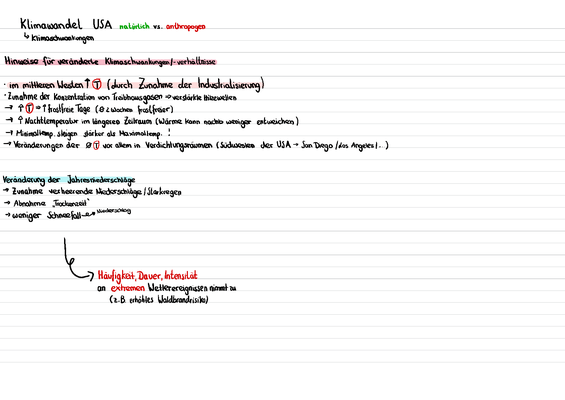 Klimawandel USA natürlich vs. anthropogen
↳ Klimaschwankungen
Hinweise für veränderte Klimaschwankungen/-verhältnisse
· im mittleren Westen ↑ Ⓣ (durch Zunahme der Industrialisierung)
· Zunahme der Konzentration von Treibhausgasen → verstärkte Hitzewellen
→ ↑ Ⓣ → ↑ frostfreie Tage (⌀ 2 Wochen frostfreier)
→ ↑ Nachttemperatur im längeren Zeitraum (Wärme kann nachts weniger entweichen)
→ Minimaltemp. steigen stärker als Maximaltemp. !
→ Veränderungen der ⌀ Ⓣ vor allem in Verdichtungsräumen (Südwesten der USA → San Diego / Los Angeles / .. )
Veränderung der Jahresniederschläge
→ Zunahme verheerende Niederschläge / Starkregen
→ Abnahme „Trockenzeit"
→ weniger Schneefall → Niederschlag
Häufigkeit, Dauer, Intensität
an extremen Wetterereignissen nimmt zu
(z.B. erhöhtes Waldbrandrisiko)